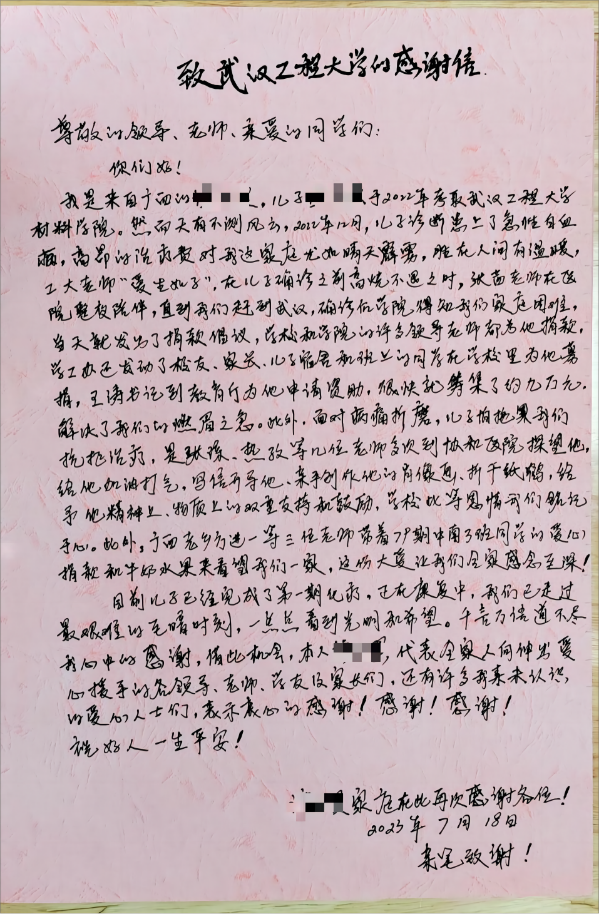 致武汉工程大学的感谢信
尊敬的领导、老师、亲爱的同学们：
你们好！
我是来自广西的，儿子于2022年考取武汉工程大学
材料学院。然而天有不测风云，2022年12月，儿子诊断患上了急性白血
病，高昂的治疗费对我这家庭尤如晴天霹雳，胜在人间有温暖，
工大老师“爱生如子”，在儿子确诊之前高烧不退之时，张老师在医
院整夜陪伴，直到我们赶到武汉，确诊后学院得知我们家庭困难，
当天就发出了捐款倡议，学校和学院的许多领导老师都为他捐款，
学工办还发动了校友、家长、儿子宿舍和班上的同学在学校里为他募
捐，王涛书记到教育厅为他申请资助，很快就筹集了约九万元，
解决了我们的燃眉之急。此外，面对病痛折磨，儿子怕拖累我们
抗拒治疗，是张、热孜等几位老师多次到协和医院探望他，
给他加油打气，写信开导他、亲手创作他的肖像画、折千纸鹤，给
予他精神上、物质上的双重支持和鼓励，学校此等恩情我们铭记
于心。此外，广西老乡方进一等三位老师带着79期中南3班同学的爱心
捐款和牛奶水果来看望我们一家，这份大爱让我们全家感念至深！
目前儿子已经完成了第一期化疗，还在康复中，我们已走过
最艰难的至暗时刻，一点点看到光明和希望。千言万语道不尽
我心中的感谢，借此机会，本人，代表全家人向伸出爱
心援手的各领导、老师、学友及家长们，还有许多我素未认识，
的爱心人士们，表示衷心的感谢！感谢！感谢！
祝好人一生平安！
家庭在此再次感谢各位！
2023年7月18日
亲笔致谢！